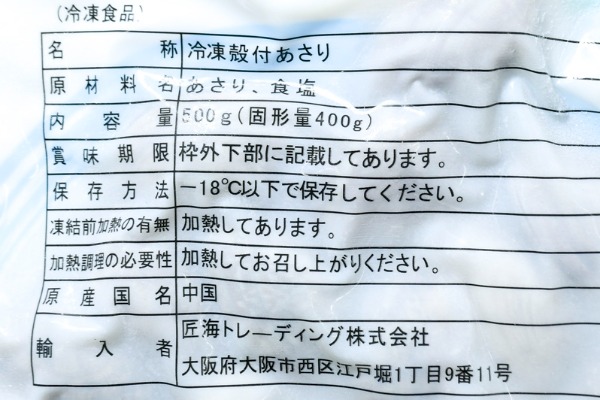 (冷凍食品)
名称 冷凍殻付あさり
原材料名 あさり、食塩
内容量 500g(固形量400g)
賞味期限 枠外下部に記載してあります。
保存方法 −18℃以下で保存してください。
凍結前加熱の有無 加熱してあります。
加熱調理の必要性 加熱してお召し上がりください。
原産国名 中国
輸入者 匠海トレーディング株式会社
大阪府大阪市西区江戸堀1丁目9番11号